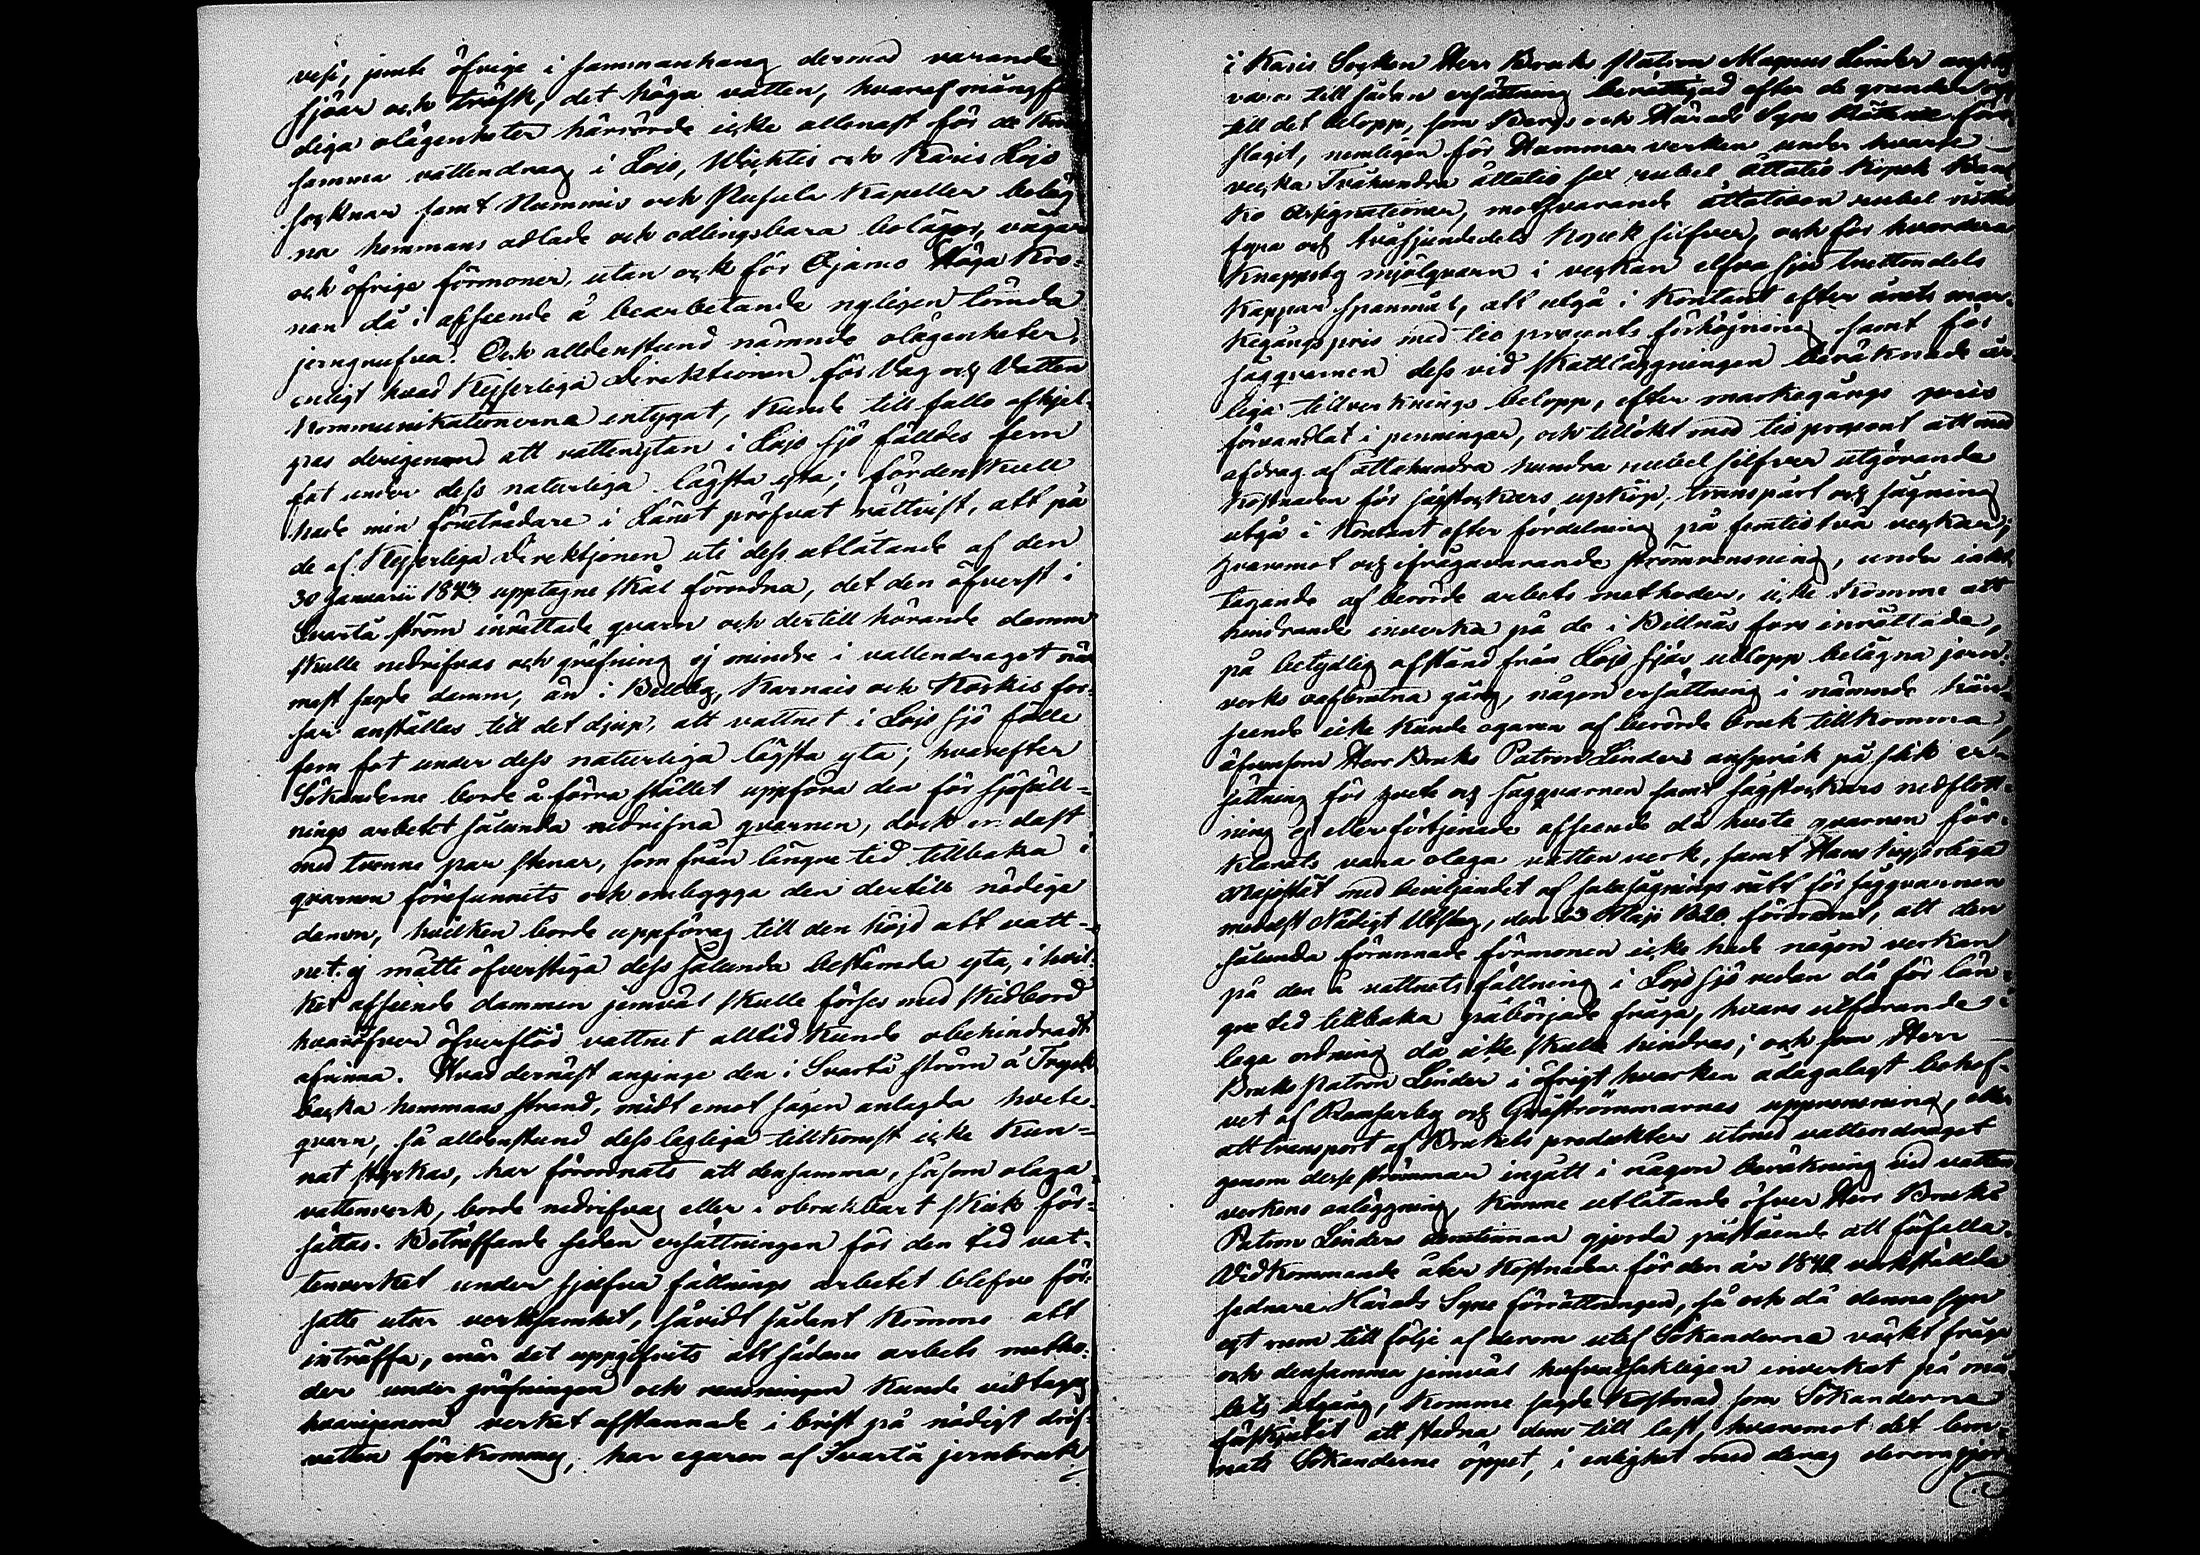 vesi, jemte öfrige i sammanhang dermed varande
sjöar och träsk, det höga vatten, hvaraf mångfal
diga olägenheter härrörde icke allenast för de kring
samma vattendrag i Lojo, Wichtis och Karis Lojo
socknar samt Nummis och Pusula Kapeller beläg
na hemmans odlade och odlingsbara belägor, vägar
och öfrige förmoner, utan ock för Ojamo Höga Kro-
nan då i afseende å bearbetande nyligen lemnda
jerngrufva. Och alldenstund nämnde olägenheter,
enligt hvad Kejserliga Direktionen för Väg och Vatten
Kommunikationerna intygat, kunde till fullo afhjel-
pas derigenom att vattenytan i Lojo sjö fälldes fem
fot under dess naturliga lägsta yta; fördenskull
hade min företrädare i Länet pröfvat rättvist, att på
de af Kejserliga Direktionen uti dess utlåtande af den
30 Januarii 1843 upptagne skäl förordna, det den öfverst i
Svartå ström inrättade qvarn och dertill hörande damm
skulle nedrifvas och gräfning ej mindre i vattendraget när
mast sagde damm, än i Billby, Karnais och Koskis for-
sar anställas till det djup, att vattnet i Lojo sjö fälle
fem fot under dess naturliga lägsta yta; hvarefter
Sökanderne borde å förra stället uppföra den för sjöfäll-
nings arbetet sålunda nedrifna qvarnen, dock endast
med tvenne par stenar, som från längre tid tillbaka i
qvarnen förefunnits och ombygga den dertill nödiga
damm, hvilken borde uppföras till den höjd att vatt-
net ej måtte öfverstiga dess sålunda bestämda yta, i hvil-
ket afseende dammen jemväl skulle förses med skidbord
hvaröfver öfverflöd vattnet alltid kunde obehindradt
afrinna. Hvad dernäst anginge den i Svartå ström å
backa hemmans strand, midt emot sågen anlagda hvete
qvarn, så alldenstund dess lagliga tillkomst icke kun-
nat styrkas, har förordnats att densamma, såsom olaga
vattenverk, borde nedrifvas eller i obrukbart skick för-
sättas. Beträffande sedan ersättningen för den tid vat-
tenverket under sjelfva fällnings arbetet blefve för-
satte utur verksamhet, såvidt sådant komme att
inträffa, enär det uppgifvits att sådane arbets metho-
der under gräfningen och rensningen kunde vidtagas
hvarigenom verket afstannade i brist på nödigt drif-
vatten förekommes, har egaren af Svartå jernbruk
i Karis Socken Herr Bruks Patron Magnus Linder ansetts
vara till sådan ersättning berättigad efter de grunder och
till det belopp, som Bergs och Härads Syne Rätterne före-
slagit, nemligen för Hammarverken under hvarje
vecka Tvåhundra åttatio sex rubel åttatio kopek Ban
ko Assignationer, motsvarande åttatioen rubel nittio
fyra och tvåsjundedels kopek silfver, och för hvardera
Knappsby mjölqvarn i veckan elfva sju trettondels
kappar spanmål, att utgå i kontant efter årets mar-
kegångspris med tio procents förhöjning samt för
sågqvarnen dess vid skattläggningen beräknade år-
liga tillverknings belopp, efter markegångs pris
förvandlat i penningar, och tillökt med tio procent att med
afdrag af åttahundra hundra rubel silfver utgörande
kostnaden för sågstockars upköp, transport och sågning
utgå i kontant efter fördelning på femtiotvå veckor;
hvaremot och ifrågavarande strömrensning, under iakt
tagande af berörde arbets methoder, icke komme att
hindrande inverka på de i Billnäs fors inrättade,
på betydlig afstånd från Lojo sjös utlopp belägna jern
verks oafbrutna gång, någon ersättning i nämnde hän-
seende icke kunde egaren af berörde bruk tillkomma,
äfvensom Herr Bruks Patron Linders anspråk på slik er-
sättning för hvete och sågqvarnen samt sågstockars nedflott-
ning ej eller förtjenade afseende då hvete qvarnen för-
klarats vara olaga vattenverk, samt Hans Kejserliga
Majestät med beviljandet af salusågnings rätt för sågqvarnen
medelst Nådigt Utslag, den 23 Maji 1820 förordnat, att den
sålunda förunnade förmonen icke hade någon verkan
på den å vattnets fällning i Lojo sjö redan då för län-
gre tid tillbaka påbörjade fråga, hvars utförande i
laga ordning då icke skulle hindras; och som Herr
Bruks Patron Linder i öfrigt hvarken ådagalagt behof-
vet af Ramsarby och Gråströmmarnes upprensning, eller
att transport af Brukets produkter utmed vattendraget
genom desse strömmar ingått i någon beräkning vid vatten
verkens anläggning, komme utlåtande öfver Herr Bruks
Patron Linders derutinnan gjorda påstående att förfalla.
Vidkommande åter kostnaden för den år 1842 verkställda
sednare Härads Syne förrättningen, så och då denna syn
egt rum till följe af derom utaf Sökanderna väckt fråga
och densamma jemväl hufvudsakligen inverkat på må
lets utgång, komme sagde kostnad som Sökanderna
förskjutit att stadna dem till last, hvaremot det lem-
nats Sökanderne öppet, i enlighet med deras derom gjor